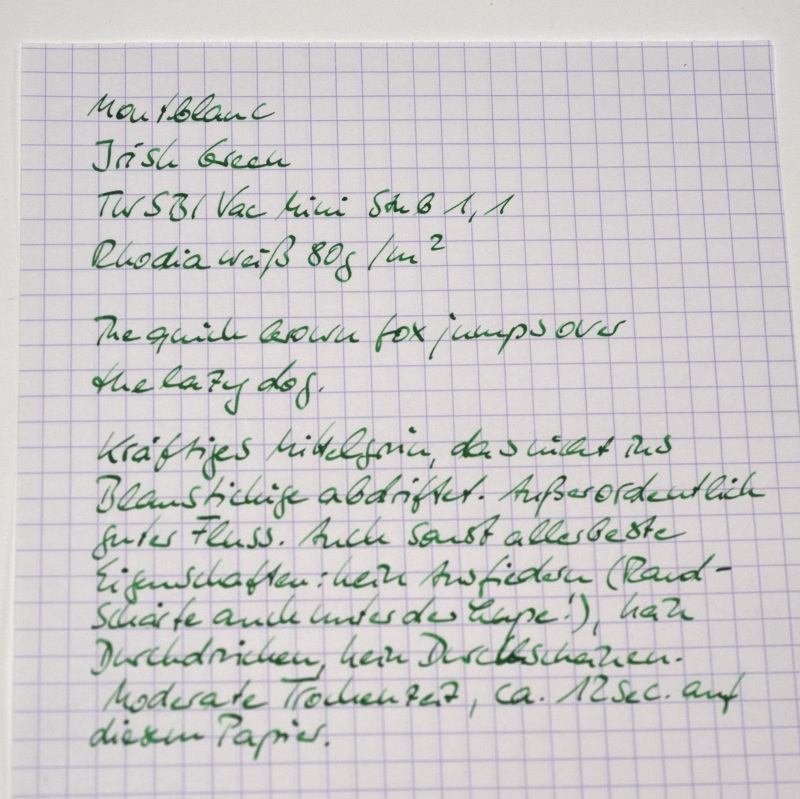 Montblanc
Irish Green
TWSBI Vac Mini Stub 1,1
Rhodia weiß 80g/m²
The quick brown fox jumps over
the lazy dog.
Kräftiges Mittelgrün, das nicht ins
Blaustichige abdriftet. Außerordentlich
guter Fluss. Auch sonst allerbeste
Eigenschaften: kein Ausfiedern (Rand-
schärfe auch unter der Lupe!), kein
Durchdrücken, kein Durchscheinen.
Moderate Trockenzeit, ca. 12 sec. auf
diesem Papier.